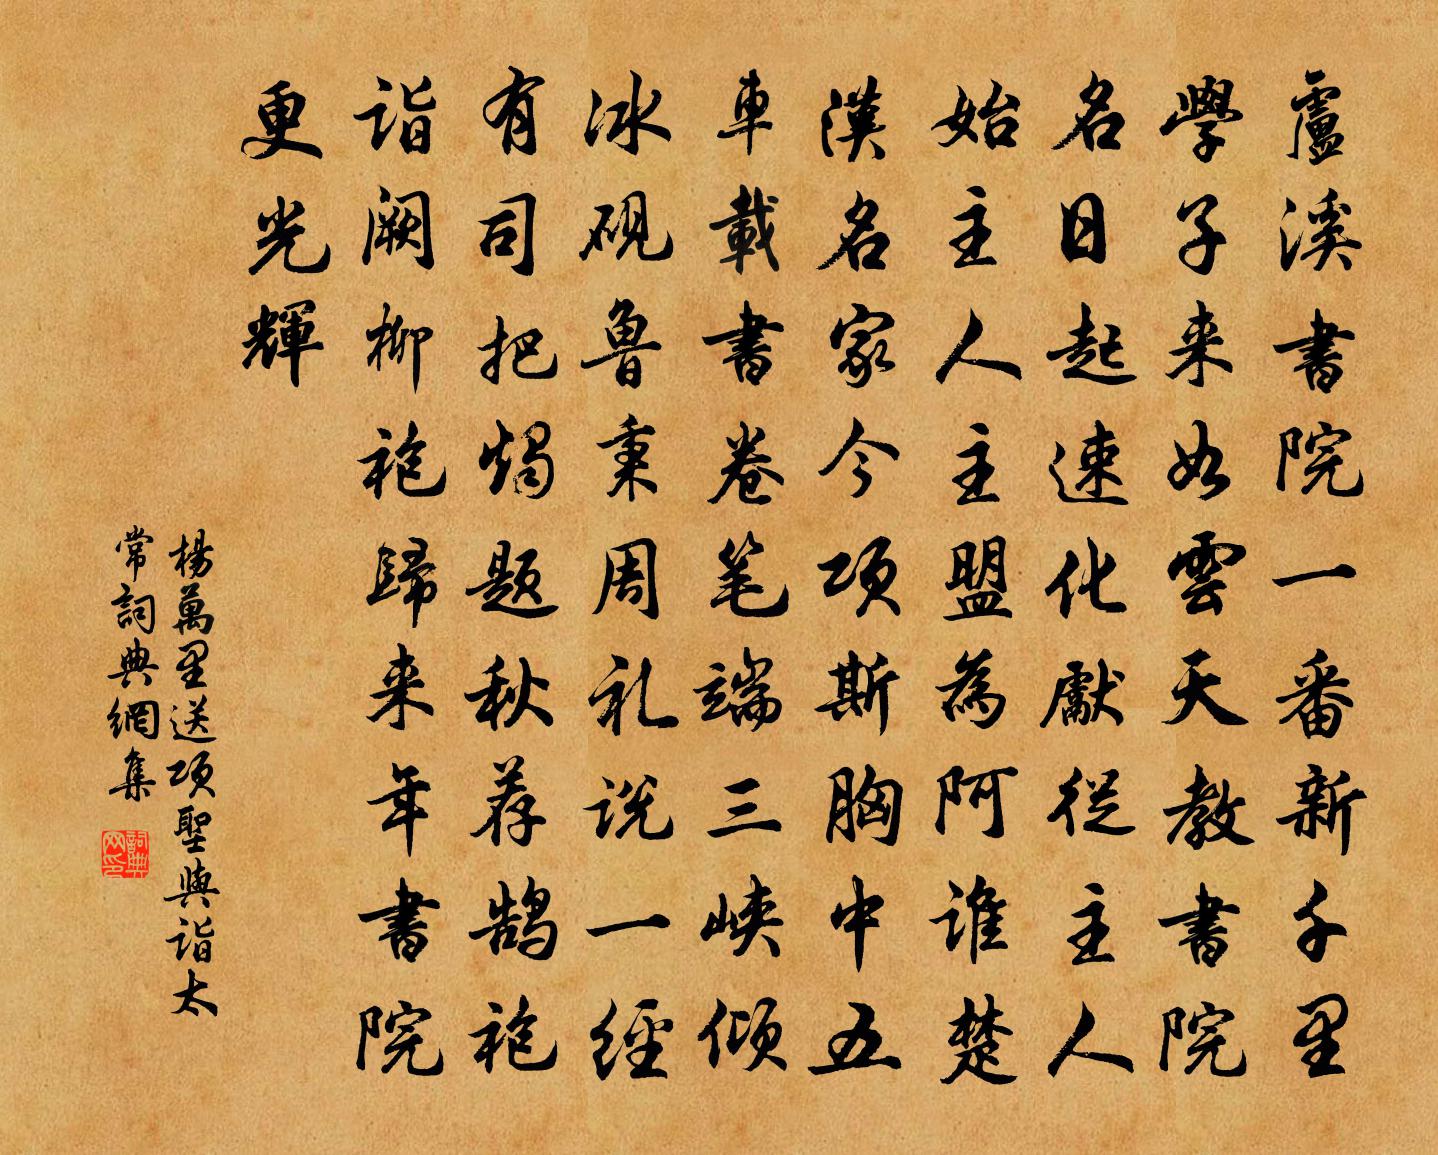 盧溪書院一番新千里
學子来如雲天教書院
名日起速化獻從主人
始主人主盟為阿誰楚
漢名家今项斯胸中五
車載書卷笔端三峽倾
冰硯魯秉周礼说一經
有司把燭题秋荐鹄袍
诣阙柳袍歸来年書院
更光輝
楊萬里送项聖與诣太
常詞典網集
詞典网印